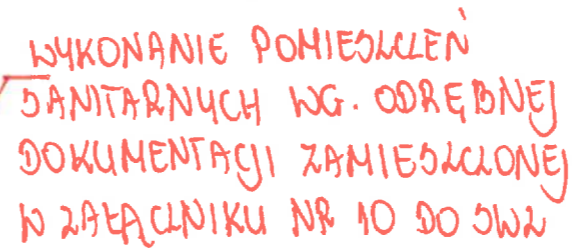 WYKONANIE POMIESZCZEŃ
SANITARNYCH WG. ODRĘBNEJ
DOKUMENTACJI ZAMIESZCZONEJ
W ZAŁĄCZNIKU NR 10 DO SWZ